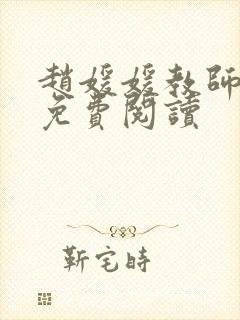 趙媛媛教師
免費閱讀
靳宅時